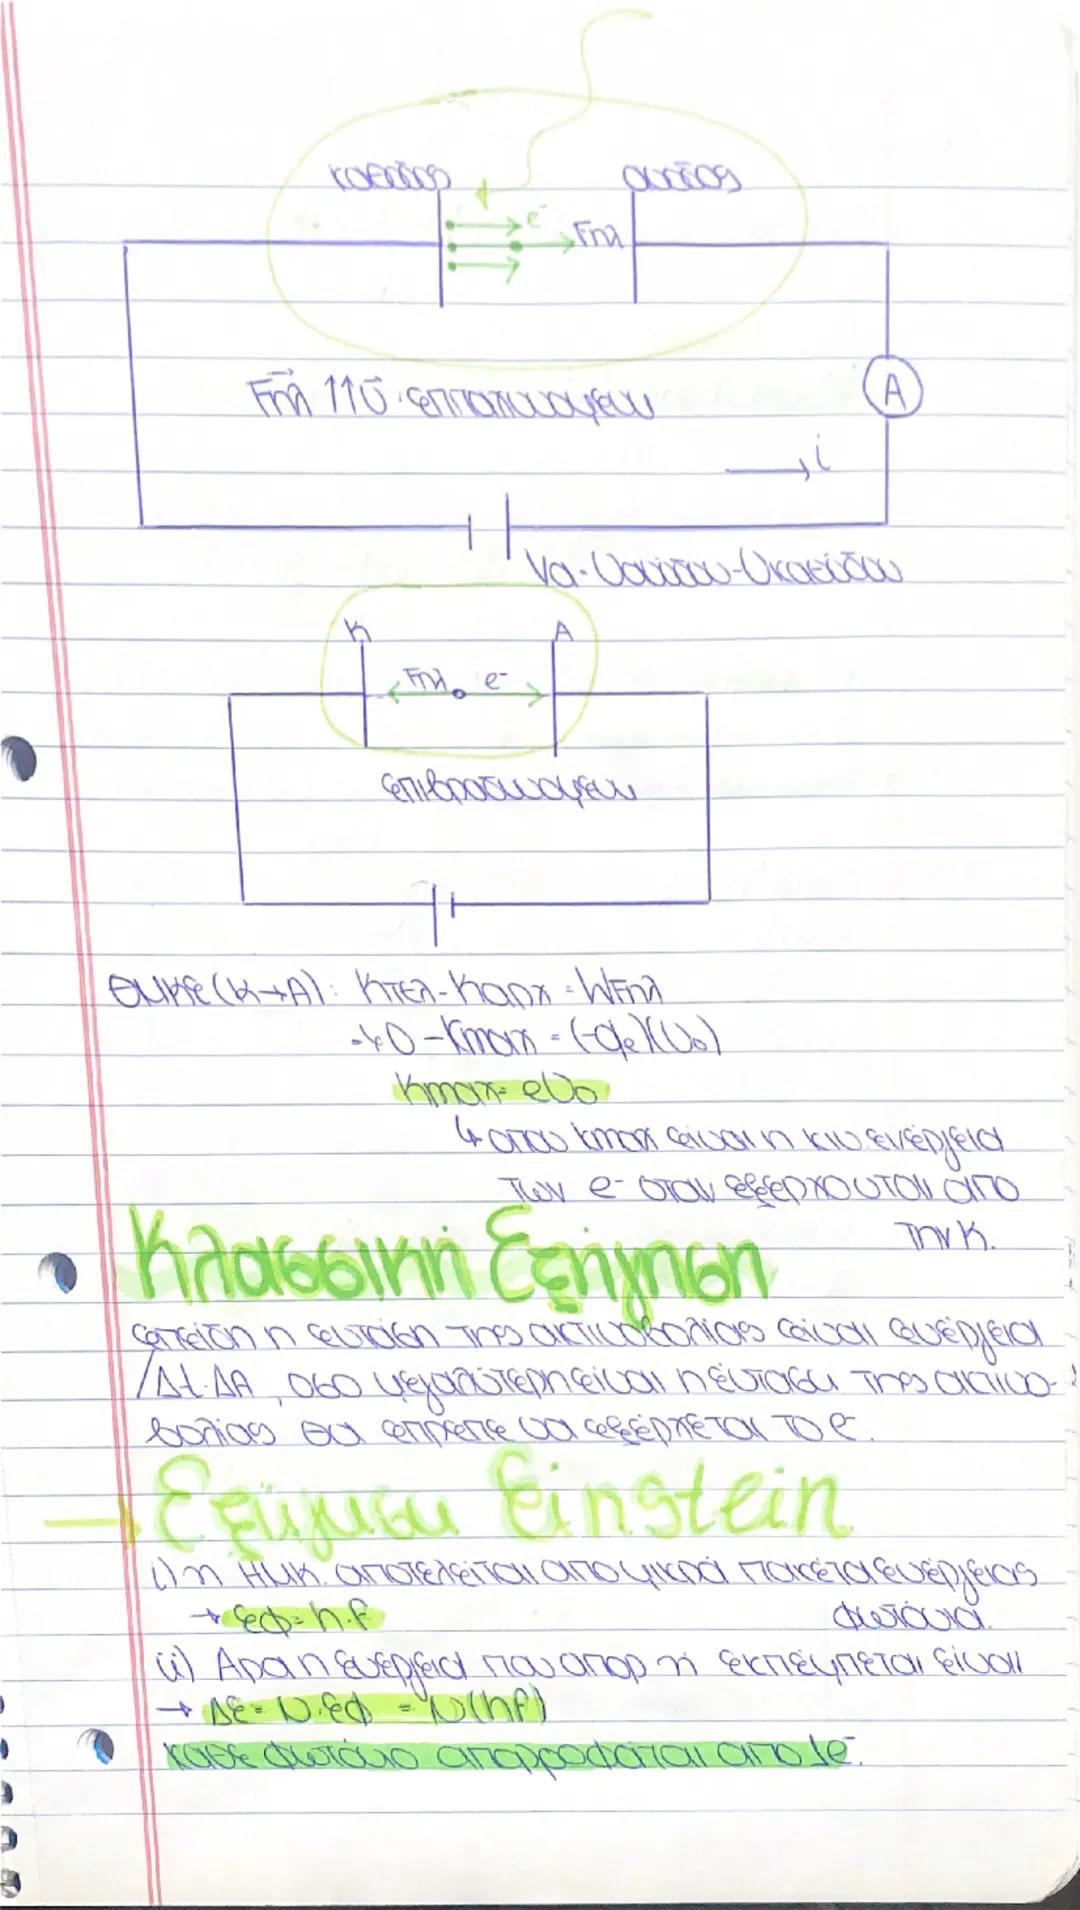 κάθοδος άνοδος
e⁻
Fηλ
Fηλ ↑↑ υ επιταχυνόμενη
A
i
Vα = Vανόδου - Vκαθόδου
K A
Fηλ e⁻
επιβραδυνόμενη
ΘΜΚΕ (Κ→Α): Κτελ - Καρχ = WFηλ
→ 0 - Kmax = (-qe)(V₀)
Kmax = eV₀
↳ όπου Kmax είναι η κιν. ενέργεια
των e⁻ όταν εξέρχονται από
την Κ.
Κλασσική Εξήγηση
επειδή η ένταση της ακτινοβολίας είναι ενέργεια
/Δt·ΔΑ, όσο μεγαλύτερη είναι η ένταση της ακτινο-
βολίας θα έπρεπε να εξέρχεται το e⁻.
→ Εξήγηση Einstein
i) η ΗΜΚ. αποτελείται από μικρά πακέτα ενέργειας
→ εφ = h·f φωτόνια.
ii) Άρα η ενέργεια που απορ ή εκπέμπεται είναι
→ ΔΕ = N·εφ = N(hf)
κάθε φωτόνιο απορροφάται από 1e⁻.